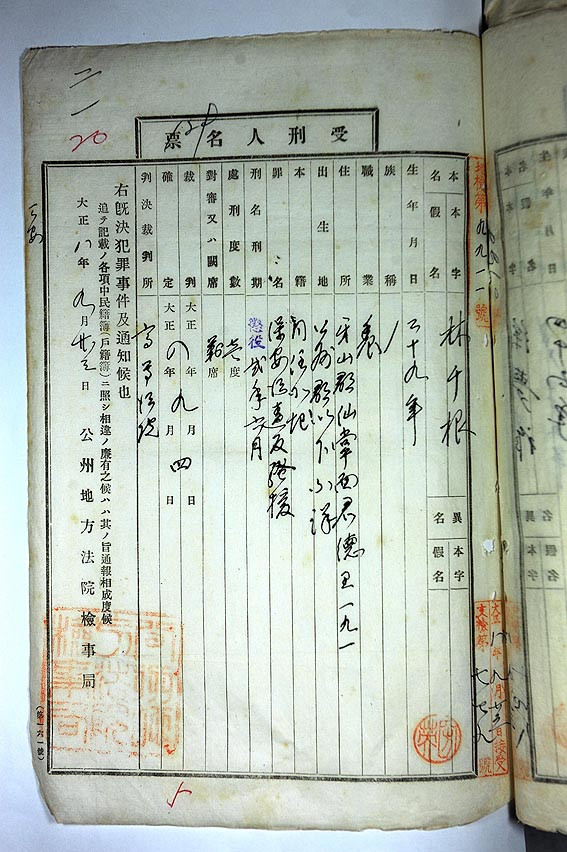 受刑人名票
本字 林千根
本名
假名
異名
本字
假名
生年月日 三十九年
族稱
職業 農
住所 牙山郡仙掌面君德里一九一
出生地 公州郡以下不詳
本籍 前住所地
罪名 保安法違反騷擾
刑名刑期 懲役 貳年六月
處刑度數 壱度
對審又ハ闕席 對席
裁判 大正八年九月四日
確定 大正 年 月 日
判決裁判所 高等法院
右旣決犯罪事件及通知候也
追テ記載ノ各項中民籍簿(戶籍簿)ニ照シ相違ノ廉有之候ハハ其ノ旨通報相成度候
大正八年九月廿三日 公州地方法院檢事局
二一
20
大正八年九月廿五日接受